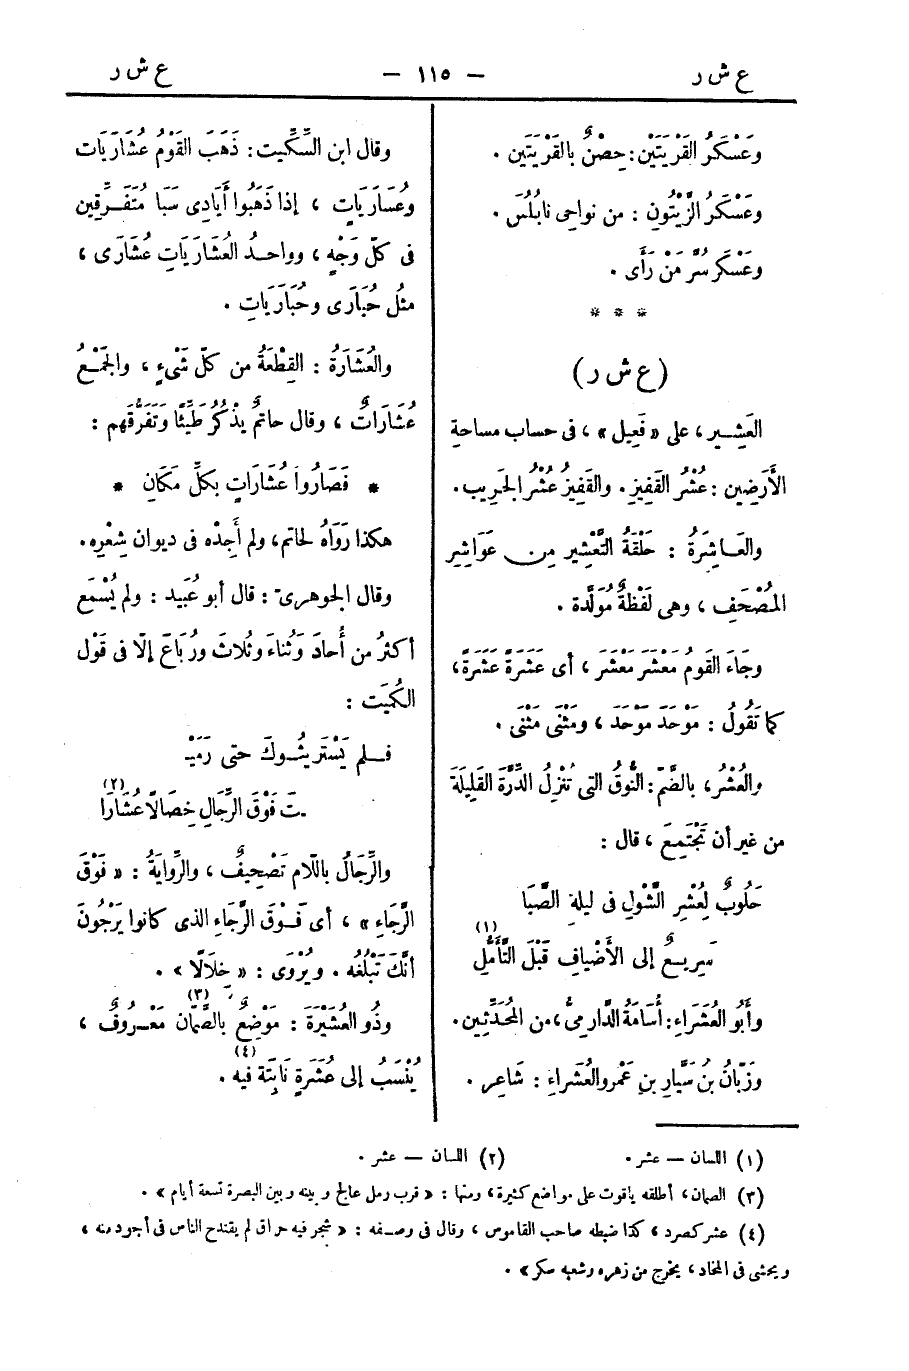 ع ش ر — ١١٥ — ع ش ر
وعَسْكَرُ القَرْيَتَيْنِ : حِصْنٌ بالقَرْيَتَيْنِ .
وعَسْكَرُ الزَّيْتُونِ : من نواحِى نابُلُسَ .
وعَسْكَر سُرَّ مَنْ رَأَى .
* * *
(ع ش ر)
العَشِير ، على « فَعِيل » ، فى حساب مساحةِ
الأَرَضِين : عُشْرُ القَفِيزِ . والقَفِيزُ عُشْرُ الجَرِيب .
والعَاشِرَةُ : حَلْقَةُ التَّعْشِير مِن عَوَاشِرِ
المُصْحَفِ ، وهى لَفْظَةٌ مُوَلَّدة .
وجَاءَ القَومُ مَعْشَرَ مَعْشَرَ ، أى عَشَرَةً عَشَرَةً ،
كما تَقُولُ : مَوْحَدَ مَوْحَدَ ، ومَثْنَى مَثْنَى .
والعُشْرُ ، بالضَّمّ : النُّوقُ التى تُنْزِلُ الدِّرَّةَ القَلِيلَةَ
من غير أن تَجْتَمِعَ ، قال :
حَلُوبٌ لِعُشْرِ الشَّوْلِ فى ليلةِ الصَّبَا
سَرِيعٌ إلى الأَضْيافِ قَبْلَ التَّأَمُّلِ (١)
وأَبُو العُشَرَاءِ : أُسَامَةُ الدَّارِمىُّ ، من المُحَدِّثِين .
وَزَبَّانُ بنُ سَيَّارِ بنِ عَمْرو العُشَراءِ : شَاعِر .
وقال ابن السِّكِّيت : ذَهَبَ القَوْمُ عُشَارَيَات
وعُسَارَيَاتٍ ، إذا ذَهَبُوا أَيَادِى سَبَا مُتَفَرِّقِين
فى كلّ وَجْهٍ ، وواحدُ العُشَارَيَاتِ عُشَارَى ،
مثلُ حُبَارَى وحُبَارَيَاتٍ .
والعُشَارَةُ : القِطْعَةُ من كلّ شَىْءٍ ، والجَمْعُ
عُشَارَاتٌ ، وقال حاتمٌ يذْكُر طَيِّئًا وتَفَرُّقَهم :
* فَصَارُوا عُشَارَاتٍ بكلِّ مَكَانِ *
هكذا رَوَاهُ لحاتم ، ولم أَجِدْه فى ديوان شِعْرِه .
وقال الجوهرىّ : قال أبو عُبَيد : ولم يُسْمَع
أكثرُ من أُحادَ وَثُناءَ وثُلاثَ ورُبَاعَ إلّا فى قَوْل
الكُمَيت :
فلم يَسْتَرِيثُوكَ حتى رَمَيْـ
ـتَ فَوْقَ الرِّجَالِ خِصَالًا عُشَارَا (٢)
والرِّجَالُ باللّام تَصْحِيفٌ ، والرِّوَايَةُ : « فَوْقَ
الرَّجَاءِ » ، أى فَوْقَ الرَّجَاءِ الذى كانوا يَرْجُونَ
أنَّكَ تَبْلُغُه . ويُرْوَى : « خِلَالًا » .
وذُو العُشَيْرَةَ : مَوْضِعٌ بالصَّمَّان (٣) مَعْرُوفٌ ،
يُنْسَبُ إلى عُشَرَةٍ (٤) نَابِتَة فيه .
(١) اللسان — عشر . (٢) اللسان — عشر .
(٣) الصمان ، أطلقه ياقوت على مواضع كثيرة ، ومنها : « قرب رمل عالج وبينه وبين البصرة تسعة أيام » .
(٤) عشر كصرد ، كذا ضبطه صاحب القاموس ، وقال فى وصفه : « شجر فيه حراق لم يقتدح الناس فى أجود منه ،
ويحشى فى المخاد ، يخرج من زهره وشعبه سكر » .